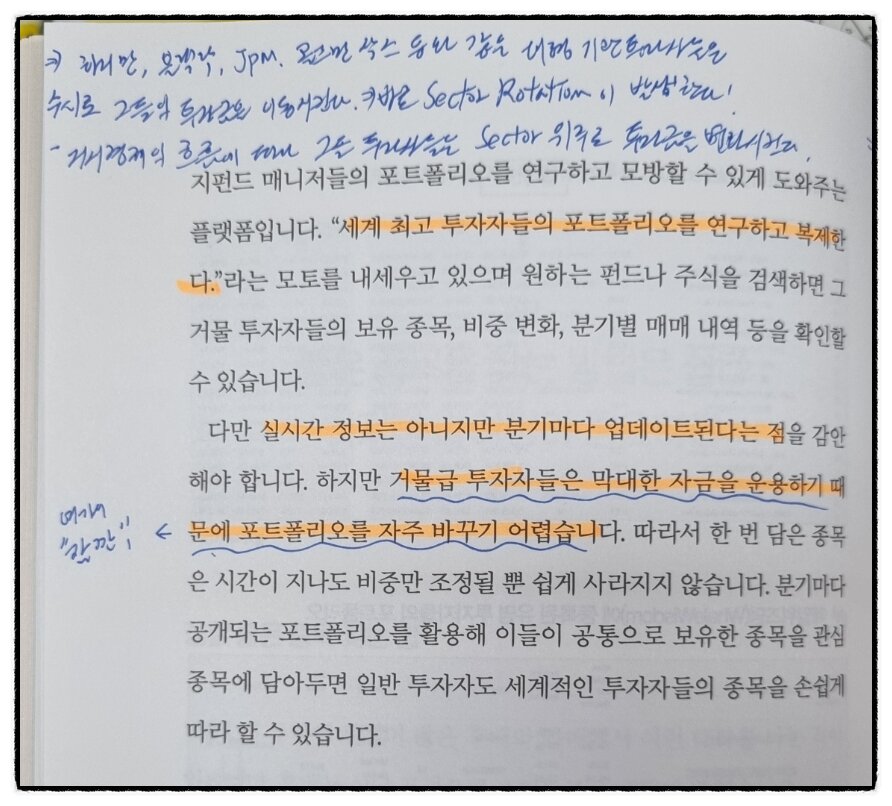 하지만, 블랙락, JPM, 골드만 삭스 등과 같은 대형 기관투자자들은
수시로 그들의 투자금을 이동시킨다. Sector Rotation이 발생한다!
- 거시경제의 흐름에 따라 그들 투자자들은 Sector 위주로 투자금을 변화시킨다.
지펀드 매니저들의 포트폴리오를 연구하고 모방할 수 있게 도와주는
플랫폼입니다. “세계 최고 투자자들의 포트폴리오를 연구하고 복제한
다.”라는 모토를 내세우고 있으며 원하는 펀드나 주식을 검색하면 그
거물 투자자들의 보유 종목, 비중 변화, 분기별 매매 내역 등을 확인할
수 있습니다.
다만 실시간 정보는 아니지만 분기마다 업데이트된다는 점을 감안
해야 합니다. 하지만 거물급 투자자들은 막대한 자금을 운용하기 때
여기서
“잠깐”! ← 문에 포트폴리오를 자주 바꾸기 어렵습니다. 따라서 한 번 담은 종목
은 시간이 지나도 비중만 조정될 뿐 쉽게 사라지지 않습니다. 분기마다
공개되는 포트폴리오를 활용해 이들이 공통으로 보유한 종목을 관심
종목에 담아두면 일반 투자자도 세계적인 투자자들의 종목을 손쉽게
따라 할 수 있습니다.